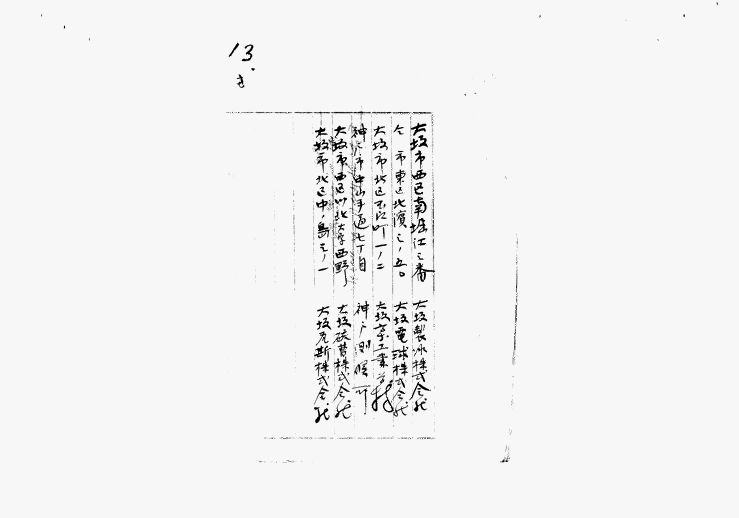 13.
大坂市西区南堀江之番 大坂製氷株式会社
仝 市東区北濱之ノ五〇 大坂電球株式会社
大坂市北区 町一ノ二 大坂 工業学校
神戸市中山手通七丁目 神戸測候所
大坂市西区川北大字西野 大坂硫曹株式会社
大坂市北区中ノ島 ノ一 大坂瓦斯株式会社